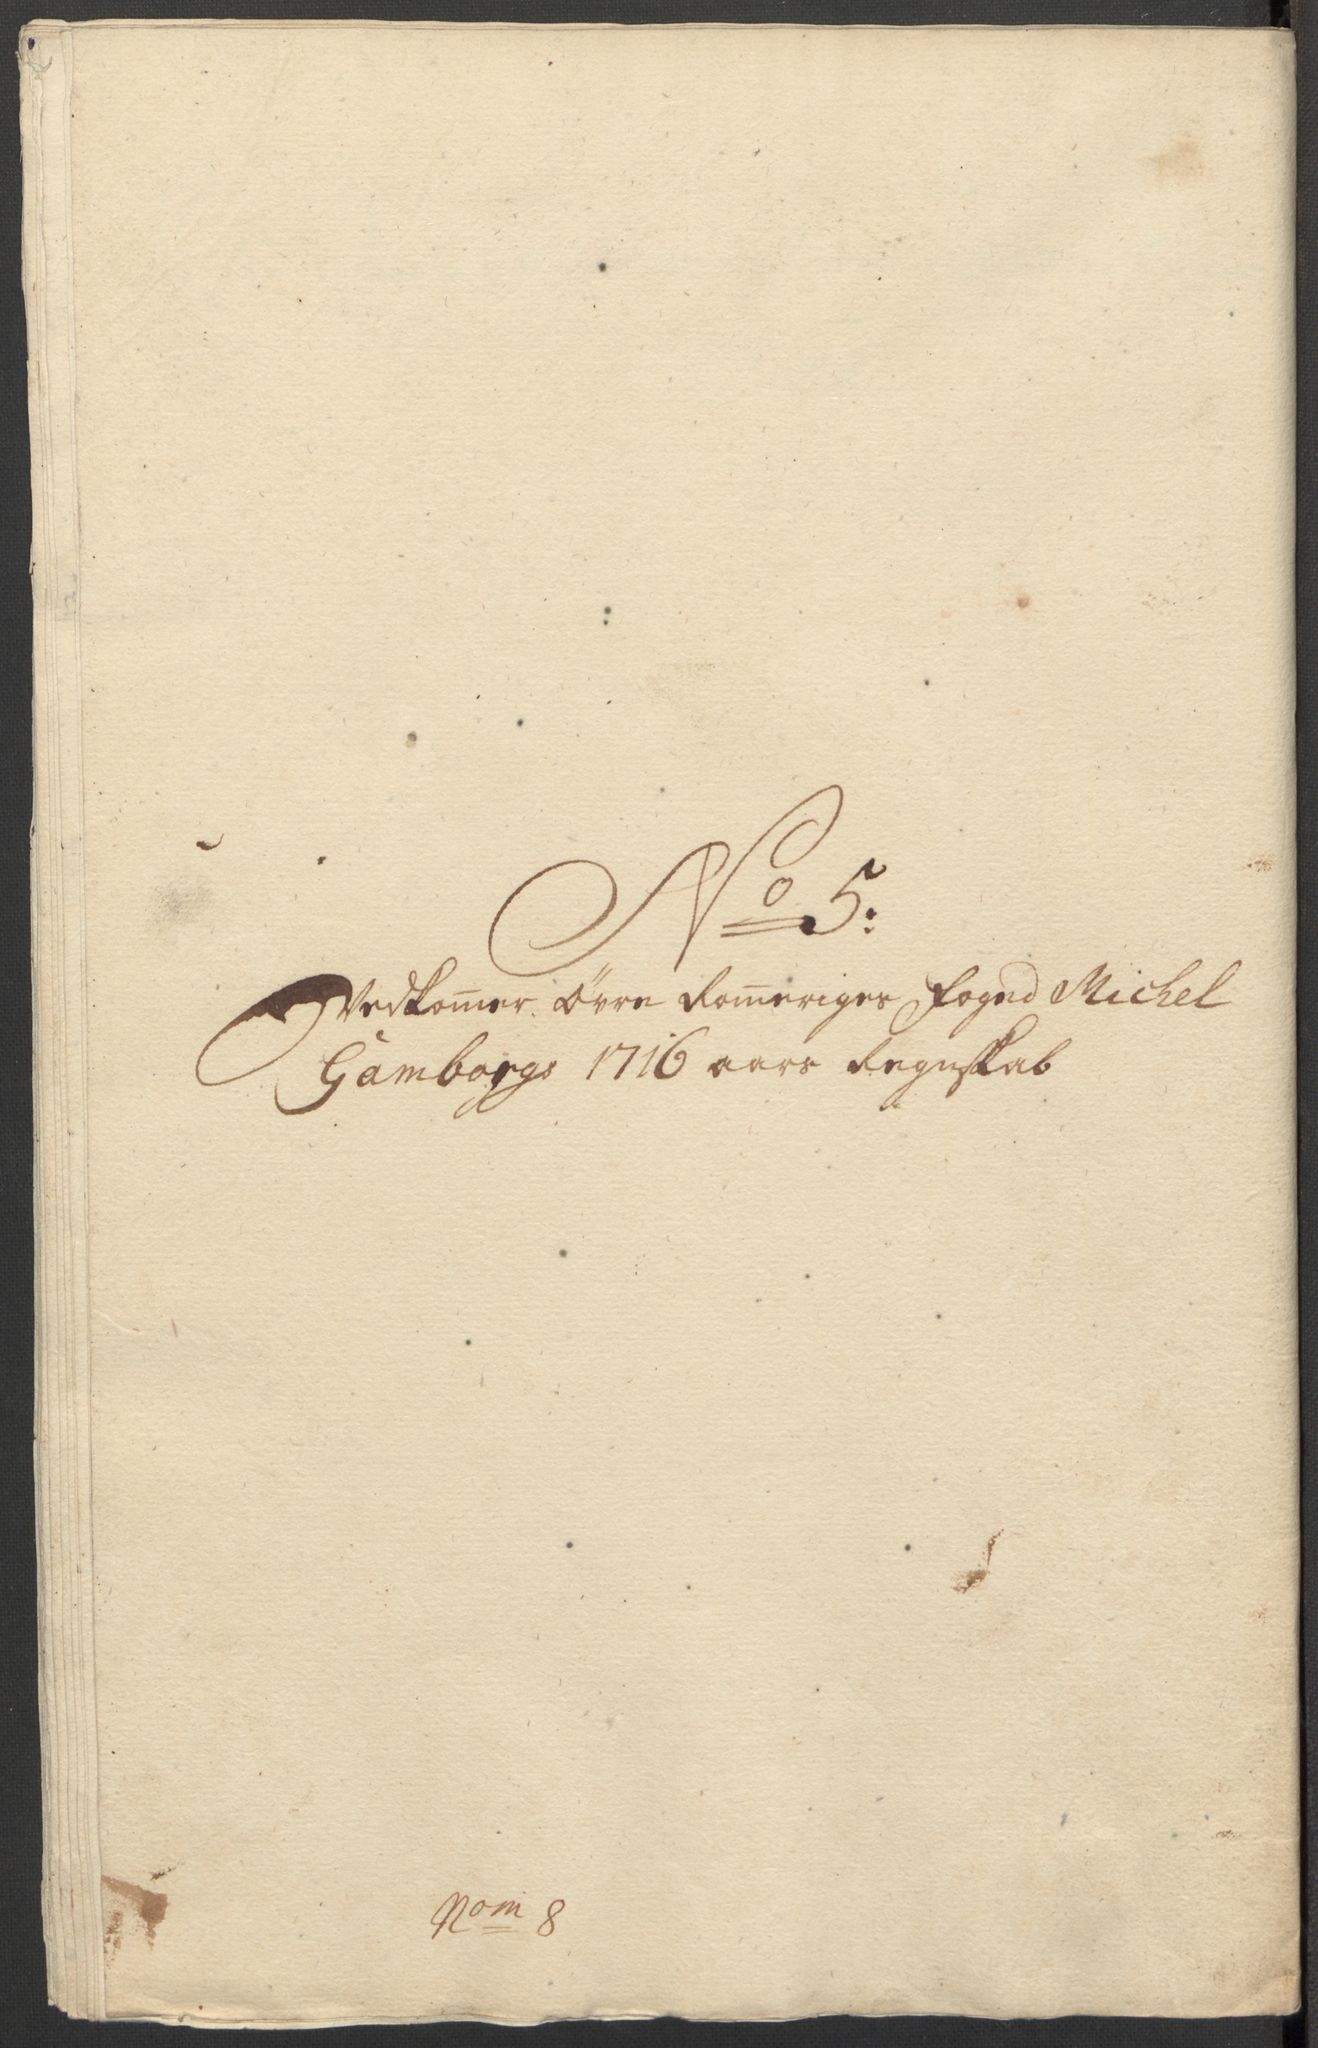 No 5:
Vedkom̄er Öfre Rom̄eriges Foged Michel
Gamborgs 1716 aars Regnskab
Nom 8